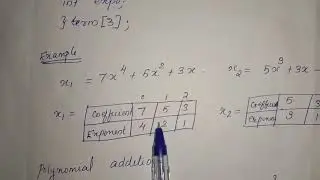 int expo;
} term[3];
Example
x₁ = 7x⁴ + 5x² + 3x
x₂ = 5x³ + 3x -
0 1 2
x₁ = Coefficient 7 5 3
Exponent 4 2 1
x₂ = Coeffici 5 3
Expone 3 1
Polynomial addition